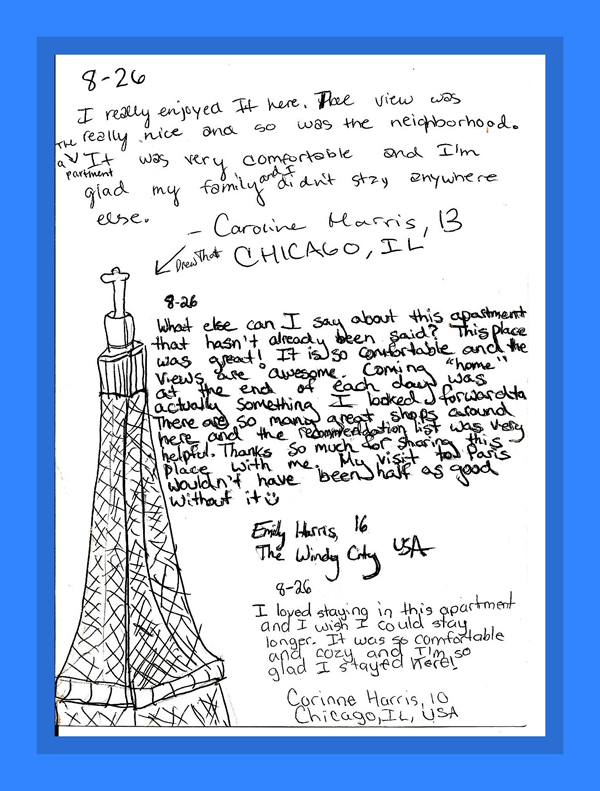 8-26
I really enjoyed It here. The view was
really nice and so was the neighborhood.
The apartment V It was very comfortable and I'm
glad my family and I didn't stay anywhere
else.
- Caroline Harris, 13
Drew That CHICAGO, IL
8-26
What else can I say about this apartment
that hasn't already been said? This place
was great! It is so comfortable and the
views are awesome. Coming "home"
at the end of each day was
actually something I looked forward to
There are so many great shops around
here and the recommendation list was very
helpful. Thanks so much for sharing this
place with me. My visit to Paris
wouldn't have been half as good
without it ☺
Emily Harris, 16
The Windy City USA
8-26
I loved staying in this apartment
and I wish I could stay
longer. It was so comfortable
and cozy and I'm so
glad I stayed here!
Corinne Harris, 10
Chicago, IL, USA